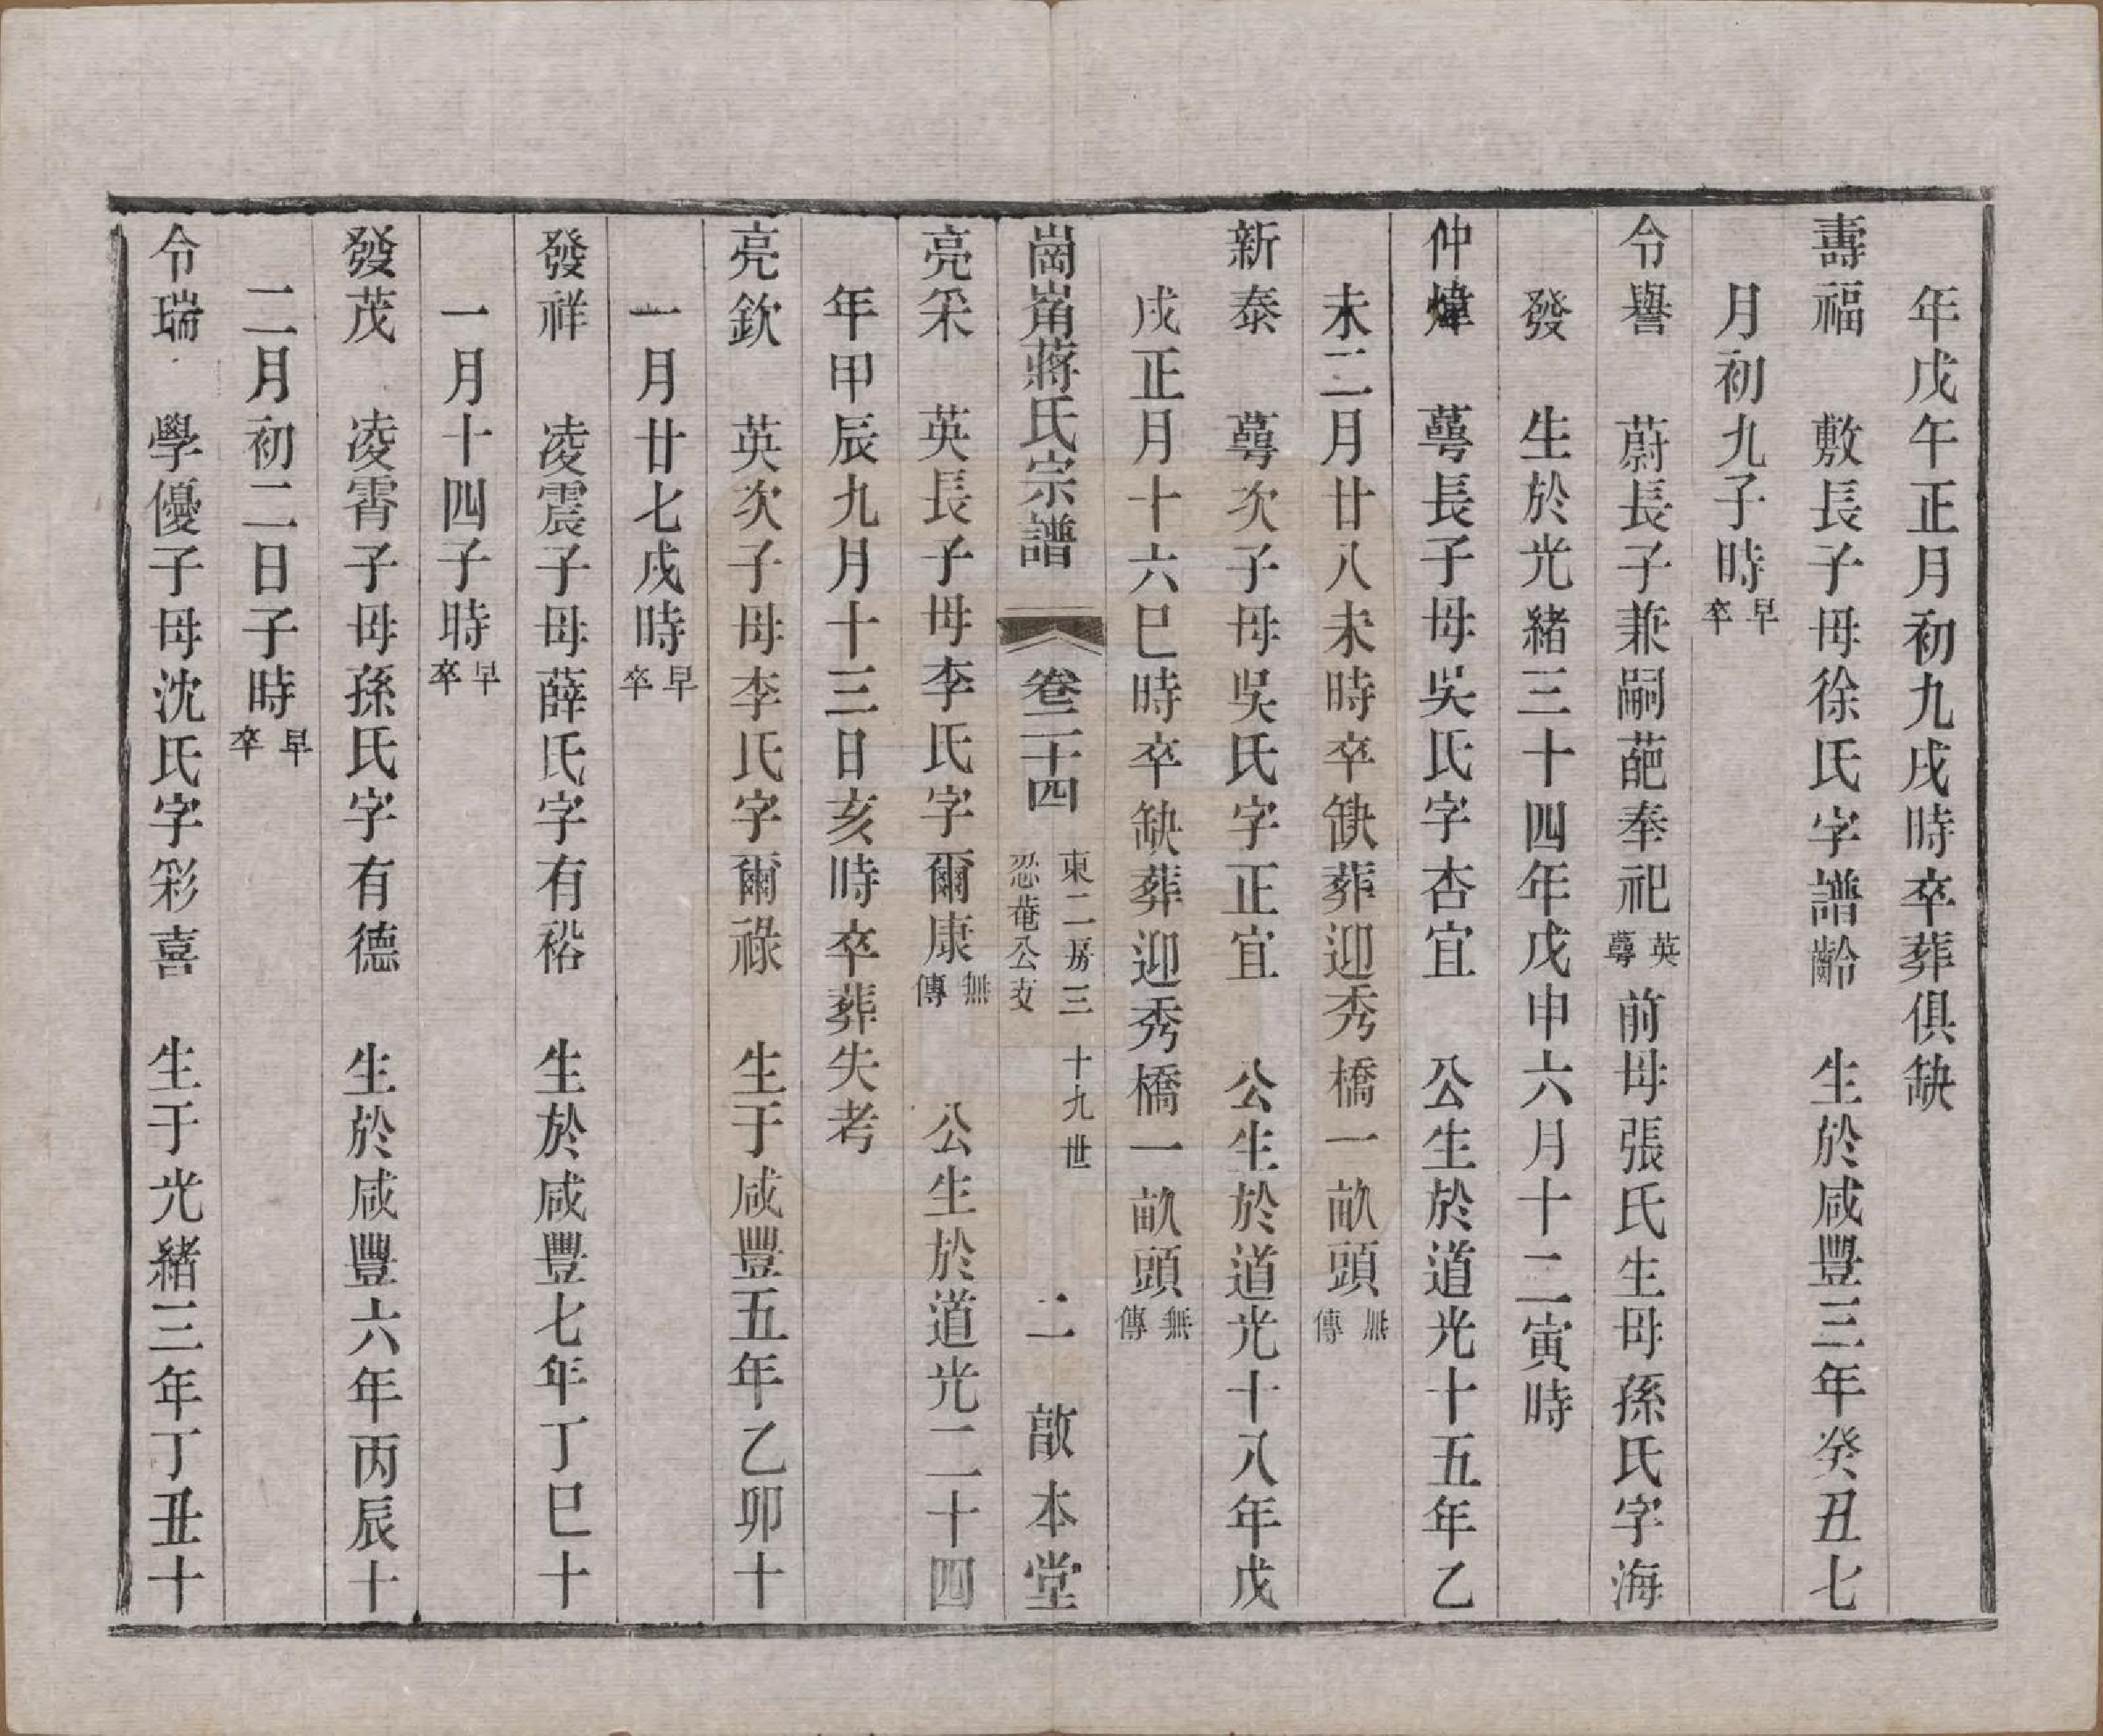 年戊午正月初九戌時卒葬俱缺
壽福　敷長子母徐氏字譜齡　生於咸豐三年癸丑七
月初九子時早卒
令譽　蔚長子兼嗣葩奉祀英蕚前母張氏生母孫氏字海
發　生於光緒三十四年戊申六月十二寅時
仲煒　蕚長子母吳氏字杏宜　公生於道光十五年乙
未二月廿八未時卒缺葬迎秀橋一畝頭無傳
新泰　蕚次子母吳氏字正宜　公生於道光十八年戊
戌正月十六巳時卒缺葬迎秀橋一畝頭無傳
崗崙蔣氏宗譜　卷二十四　東二房三　十九世　忍菴公支　二　敬本堂
亮采　英長子母李氏字爾康無傳　公生於道光二十四
年甲辰九月十三日亥時卒葬失考
亮欽　英次子母李氏字爾祿　生于咸豐五年乙卯十
一月廿七戌時早卒
發祥　凌震子母薛氏字有裕　生於咸豐七年丁巳十
一月十四子時早卒
發茂　凌霄子母孫氏字有德　生於咸豐六年丙辰十
二月初二日子時早卒
令瑞　學優子母沈氏字彩喜　生于光緒三年丁丑十